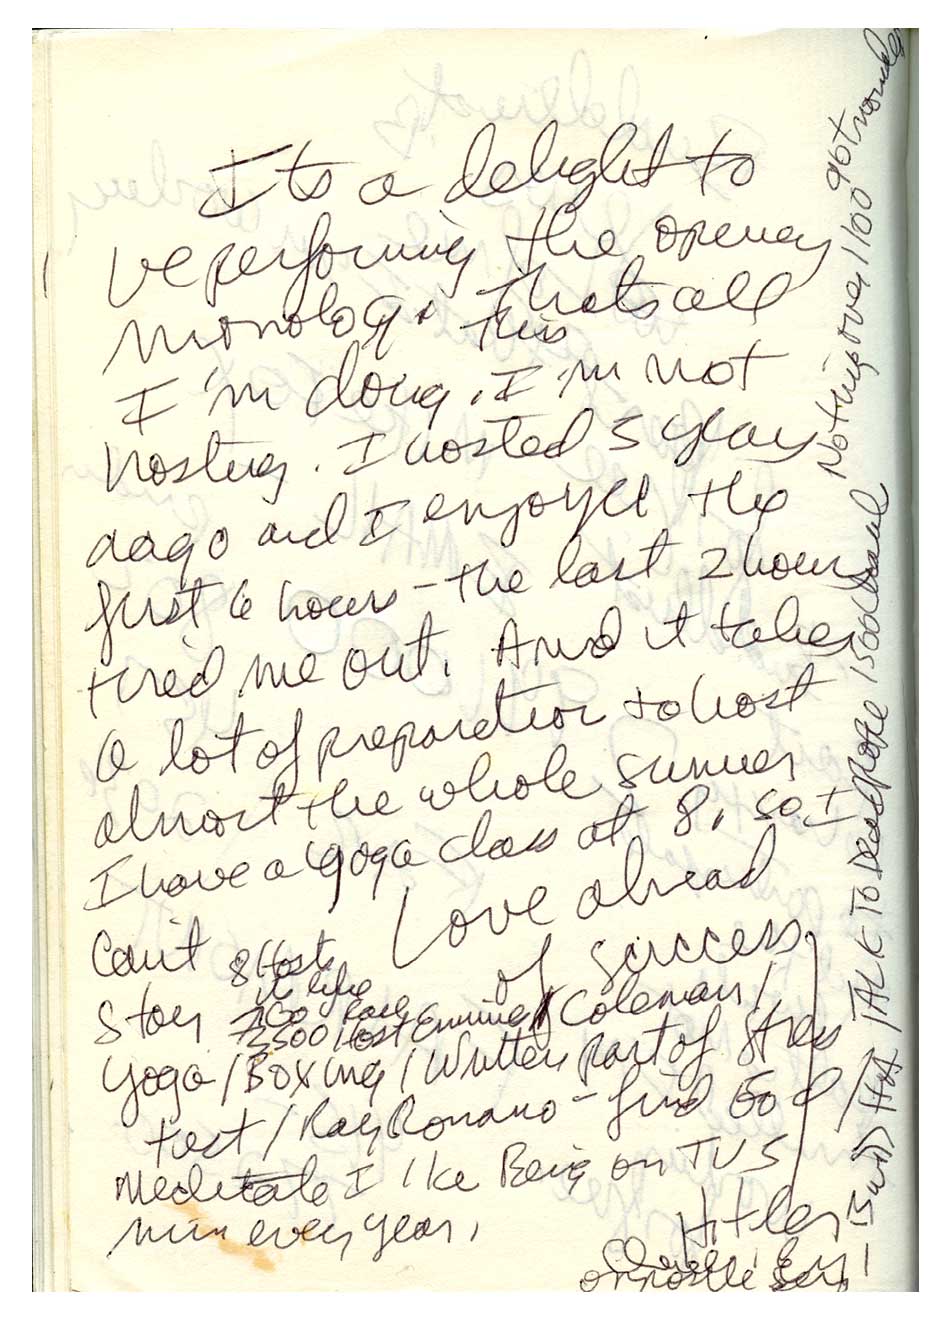 Its a delight to
be performing the opening
monolog. Thats all
this
I'm doug. I'm not
hosting. I hosted 3 years
ago and I enjoyed the
first 6 hours - the last 2 hours
tired me out. And it takes
a lot of preparation to host
almost the whole summer
I have a yoga class at 8, so I
Can't
Stay
Love ahead
of success
8 Host
Host Emmies / Coleman /
Yoga / Boxing / Written part of Stress
test / Ray Romano - find God
Meditate I like Being on TV 5
min every year.
Hitler
opposite sex
TALK TO Dead people 1500
Nothing over 1100 got